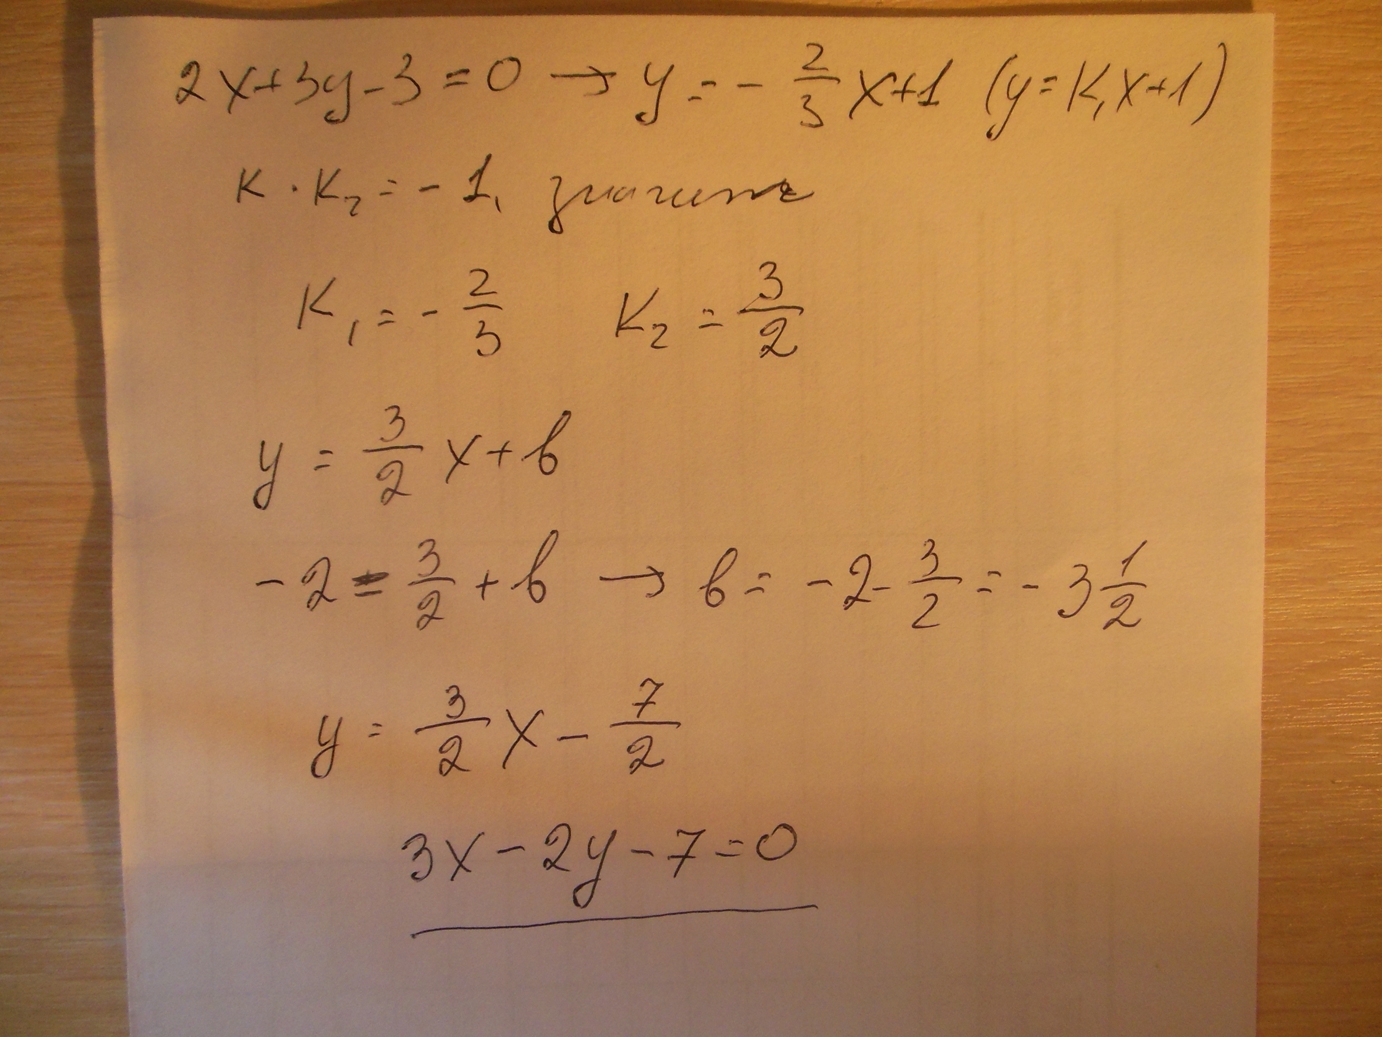 2x+3y-3=0 → y=-2/3x+1 (y=K₁x+1)
K·K₂=-1, значит
K₁=-2/3 K₂=3/2
y=3/2x+b
-2=3/2+b → b=-2-3/2=-3 1/2
y=3/2x-7/2
3x-2y-7=0